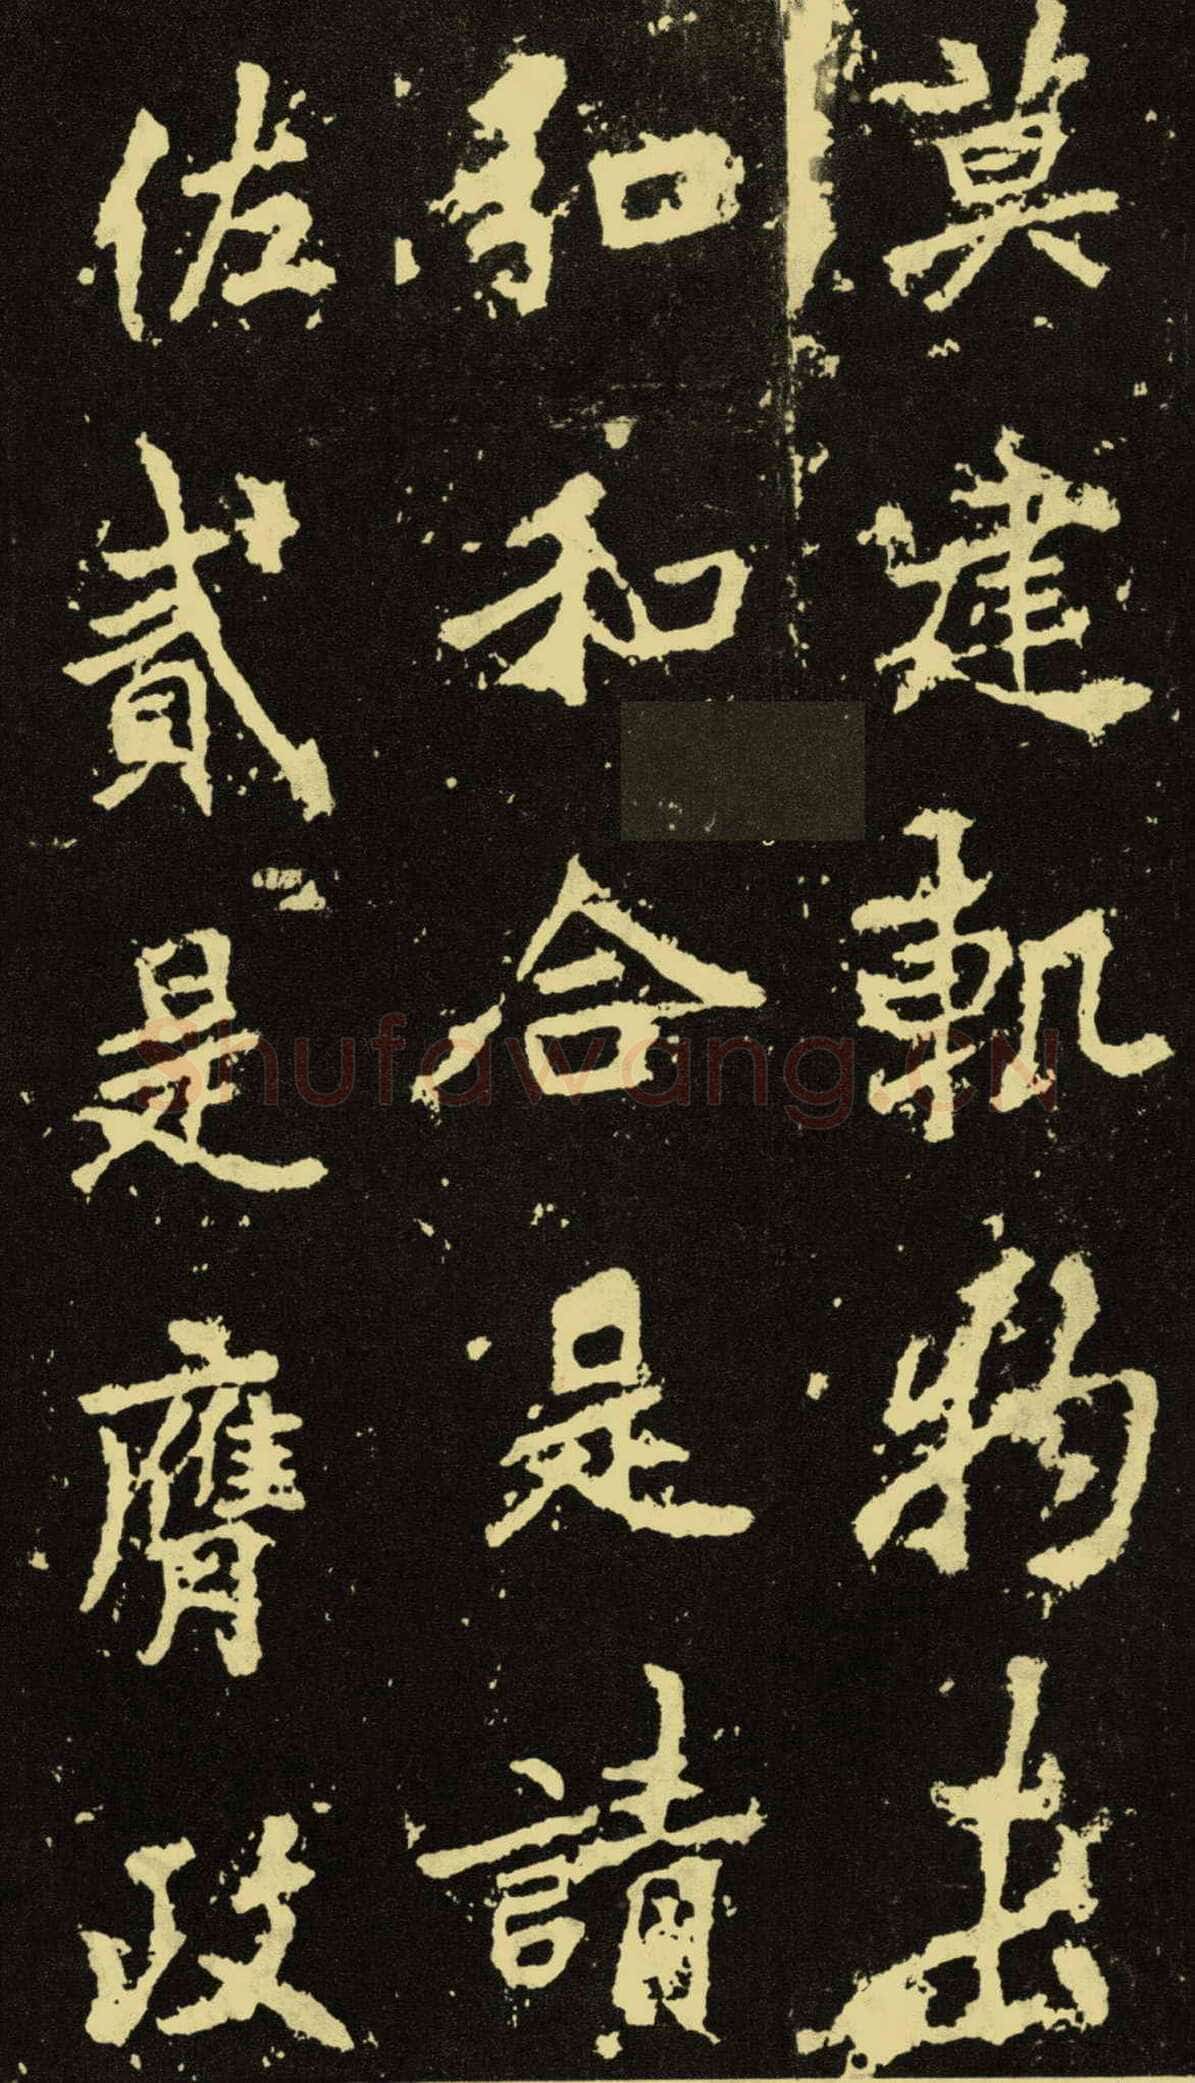 莫建軌物出
知和合是請
佐貳是膺政
Shufawang.CN